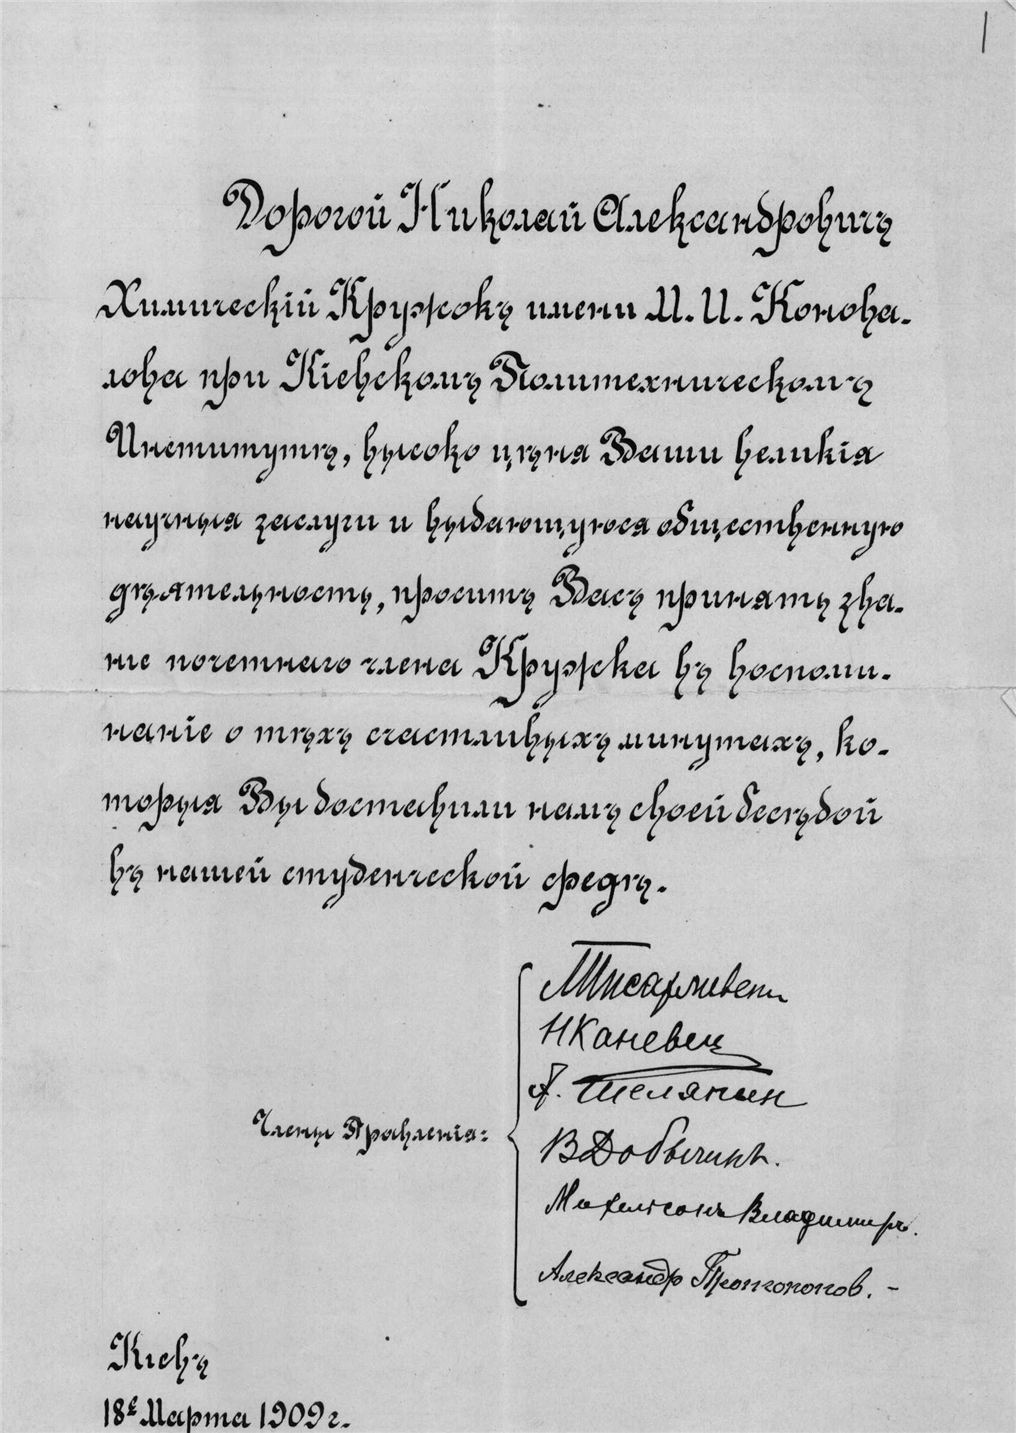 1
Дорогой Николай Александровичъ
Химическій Кружокъ имени М. И. Конова-
лова при Кіевскомъ Политехническомъ
Институтѣ, высоко цѣня Ваши великія
научныя заслуги и выдающуюся общественную
дѣятельность, проситъ Васъ принять зва-
ніе почетнаго члена Кружка въ воспоми-
наніе о тѣхъ счастливыхъ минутахъ, ко-
торыя Вы доставили намъ своей бесѣдой
въ нашей студенческой средѣ.
Члены Правленія:
Н Каневец
А. Шелягин
В Добычинъ.
Михельсонъ Владимиръ.
Александр
Кіевъ
18е Марта 1909 г.